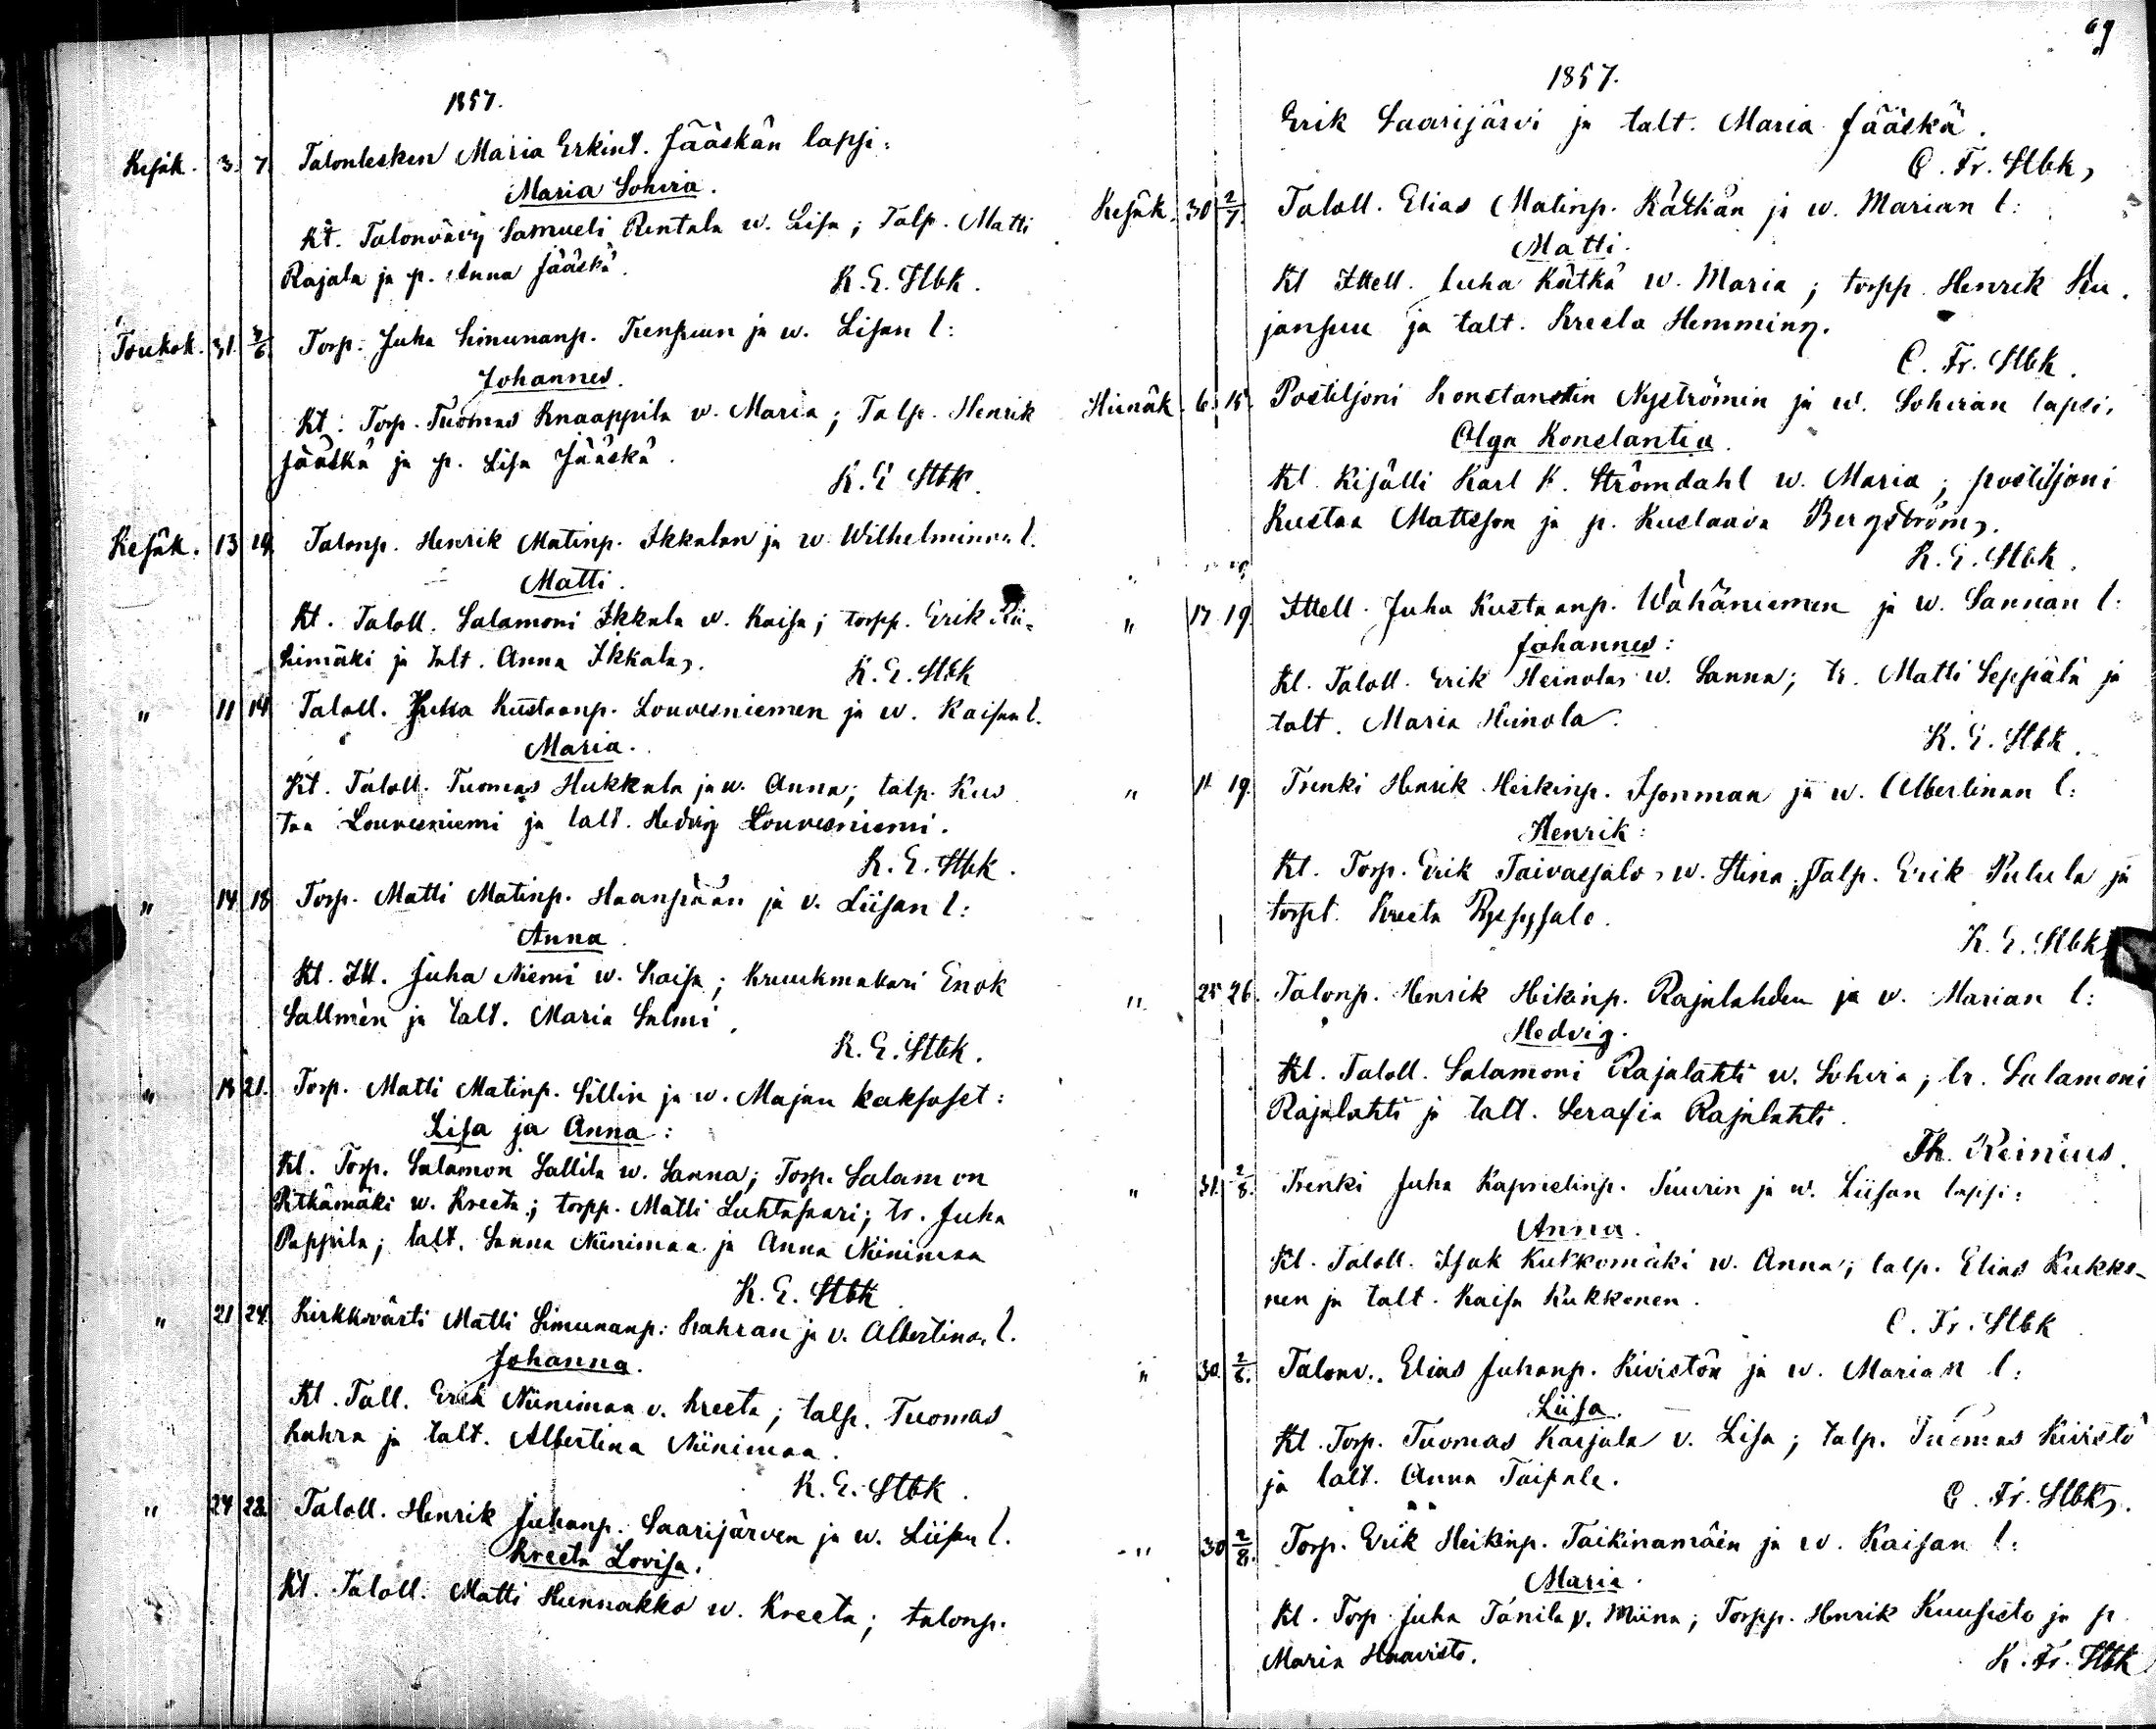 1857.
Kesäk. 3. 7. Talonlesken Maria Erkint. Jääskän lapsi:
Maria Sohvia.
Kt. Talonvävy Samueli Rentala w. Lisa; Talp. Matti
Rajala ja p. Anna Jääskä.
K. E. Stbk.
Toukok. 31. 2/6. Torp. Juha Simunanp. ja w. Lisan l:
Johannes.
Kt: Torp. Tuomas Knaappila w. Maria; Talp. Henrik
Jääskä ja p. Lisa Jääskä.
K. E. Stbk.
Kesäk. 13 19 Talonp. Henrik Matinp. Ikkalan ja w. Wilhelminan l.
Matti.
Kt. Taloll. Salamoni Ikkala w. Kaisa; torpp. Erik Rii-
himäki ja talt. Anna Ikkala.
K. E. Stbk
" 11 14 Taloll. Juha Kustaanp. Louvesniemen ja w. Kaisan l.
Maria.
Kt. Taloll. Tuomas Hukkala ja w. Anna; talp. Kus
taa Louvesniemi ja talt. Hedvig Louvesniemi.
K. E. Stbk.
" 14 18 Torp. Matti Matinp. Haanpään ja v. Liisan l:
Anna.
Kt. Itt. Juha Niemi w. Kaisa; Kruukmakari Enok
Sallmèn ja talt. Maria Salmi.
K. E. Stbk.
" 18 21. Torp. Matti Matinp. Sillin ja w. Majan kaksoset:
Lisa ja Anna:
Kt. Torp. Salamon Sallila w. Sanna; Torp. Salamon
Pitkämäki w. Kreeta; torpp. Matti Luhtasaari; tr. Juha
Pappila; talt. Sanna Niinimaa ja Anna Niinimaa
K. E. Stbk
" 21 24. Kirkkovärti Matti Simunanp. Kahran ja v. Albertina. l.
Johanna.
Kt. Tall. Erik Niinimaa v. Kreeta; talp. Tuomas
Kahra ja talt. Albertina Niinimaa.
K. E. Stbk.
" 24 28. Taloll. Henrik Juhanp. Saarijärven ja w. Liisan l.
Kreeta Lovisa.
Kt. Taloll. Matti Kunnakko w. Kreeta; talonp.
69
1857.
Erik Saarijärvi ja talt. Maria Jääskä.
C. Fr. Stbk,
Kesäk. 30 2/7. Taloll. Elias Matinp. Kätkän ja w. Marian l:
Matti.
Kt Ittell. Juha Kätkä w. Maria; torpp. Henrik Ku.
janpuu ja talt. Kreeta Hemming.
C. Fr. Stbk.
Hiinäk. 6. 15. Postiljoni Konstantin Nyströmin ja w. Sohvian lapsi.
Olga Konstantia.
Kt. Kisälli Karl K. Strömdahl w. Maria; postiljoni
Kustaa Mattsson ja p. Kustaava Bergström.
K. E. Stbk.
" 17 19. Ittell. Juha Kustaanp. Wähäniemen ja w. Sannan l:
Johannes:
Kt. Taloll. Erik Heinola w. Sanna; tr. Matti Seppälä ja
talt. Maria Heinola.
K. E. Stbk.
" 11 19. Trenki Henrik Heikinp. ja w. Albertinan l:
Henrik:
Kt. Torp. Erik Taivassalo w. Stina; Talp. Erik Putula ja
torpt. Kreeta
K. E. Stbk
" 25 26. Talonp. Henrik Heikinp. Rajalahden ja v. Marian l:
Hedvig.
Kt. Taloll. Salamoni Rajalahti w. Sohvia; tr. Salamoni
Rajalahti ja talt. Serafia Rajalahti.
Th. Reinius.
" 31. 2/8. Trenki Juha Kaprielinp. Tuurin ja w. Liisan lapsi:
Anna.
Kt. Taloll. Isak Kukkomäki w. Anna; talp. Elias Kukko-
nen ja talt. Kaisa Kukkonen.
C. Fr. Stbk
" 30. 2/8. Talonv. Elias Juhanp. Kivistön ja w. Marian l:
Liisa.
Kt. Torp. Tuomas Karjala v. Lisa; talp. Tuomas Kivistö
ja talt. Anna Taipale.
C. Fr. Stbk.
" 30 2/8. Torp. Erik Heikinp. Taikinamäen ja w. Kaisan l:
Maria.
Kt. Torp. Juha Tánila v. Miina; Torpp. Henrik Kuusisto ja p.
Maria Haavisto.
K. Fr. Stbk